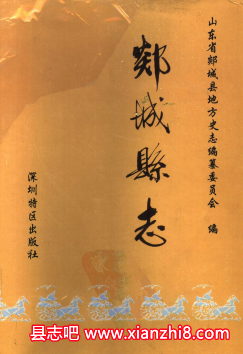 山东省郯城县地方史志编纂委员会 编
郯城縣志
深圳特区出版社
县志吧 www.xianzhi8.com